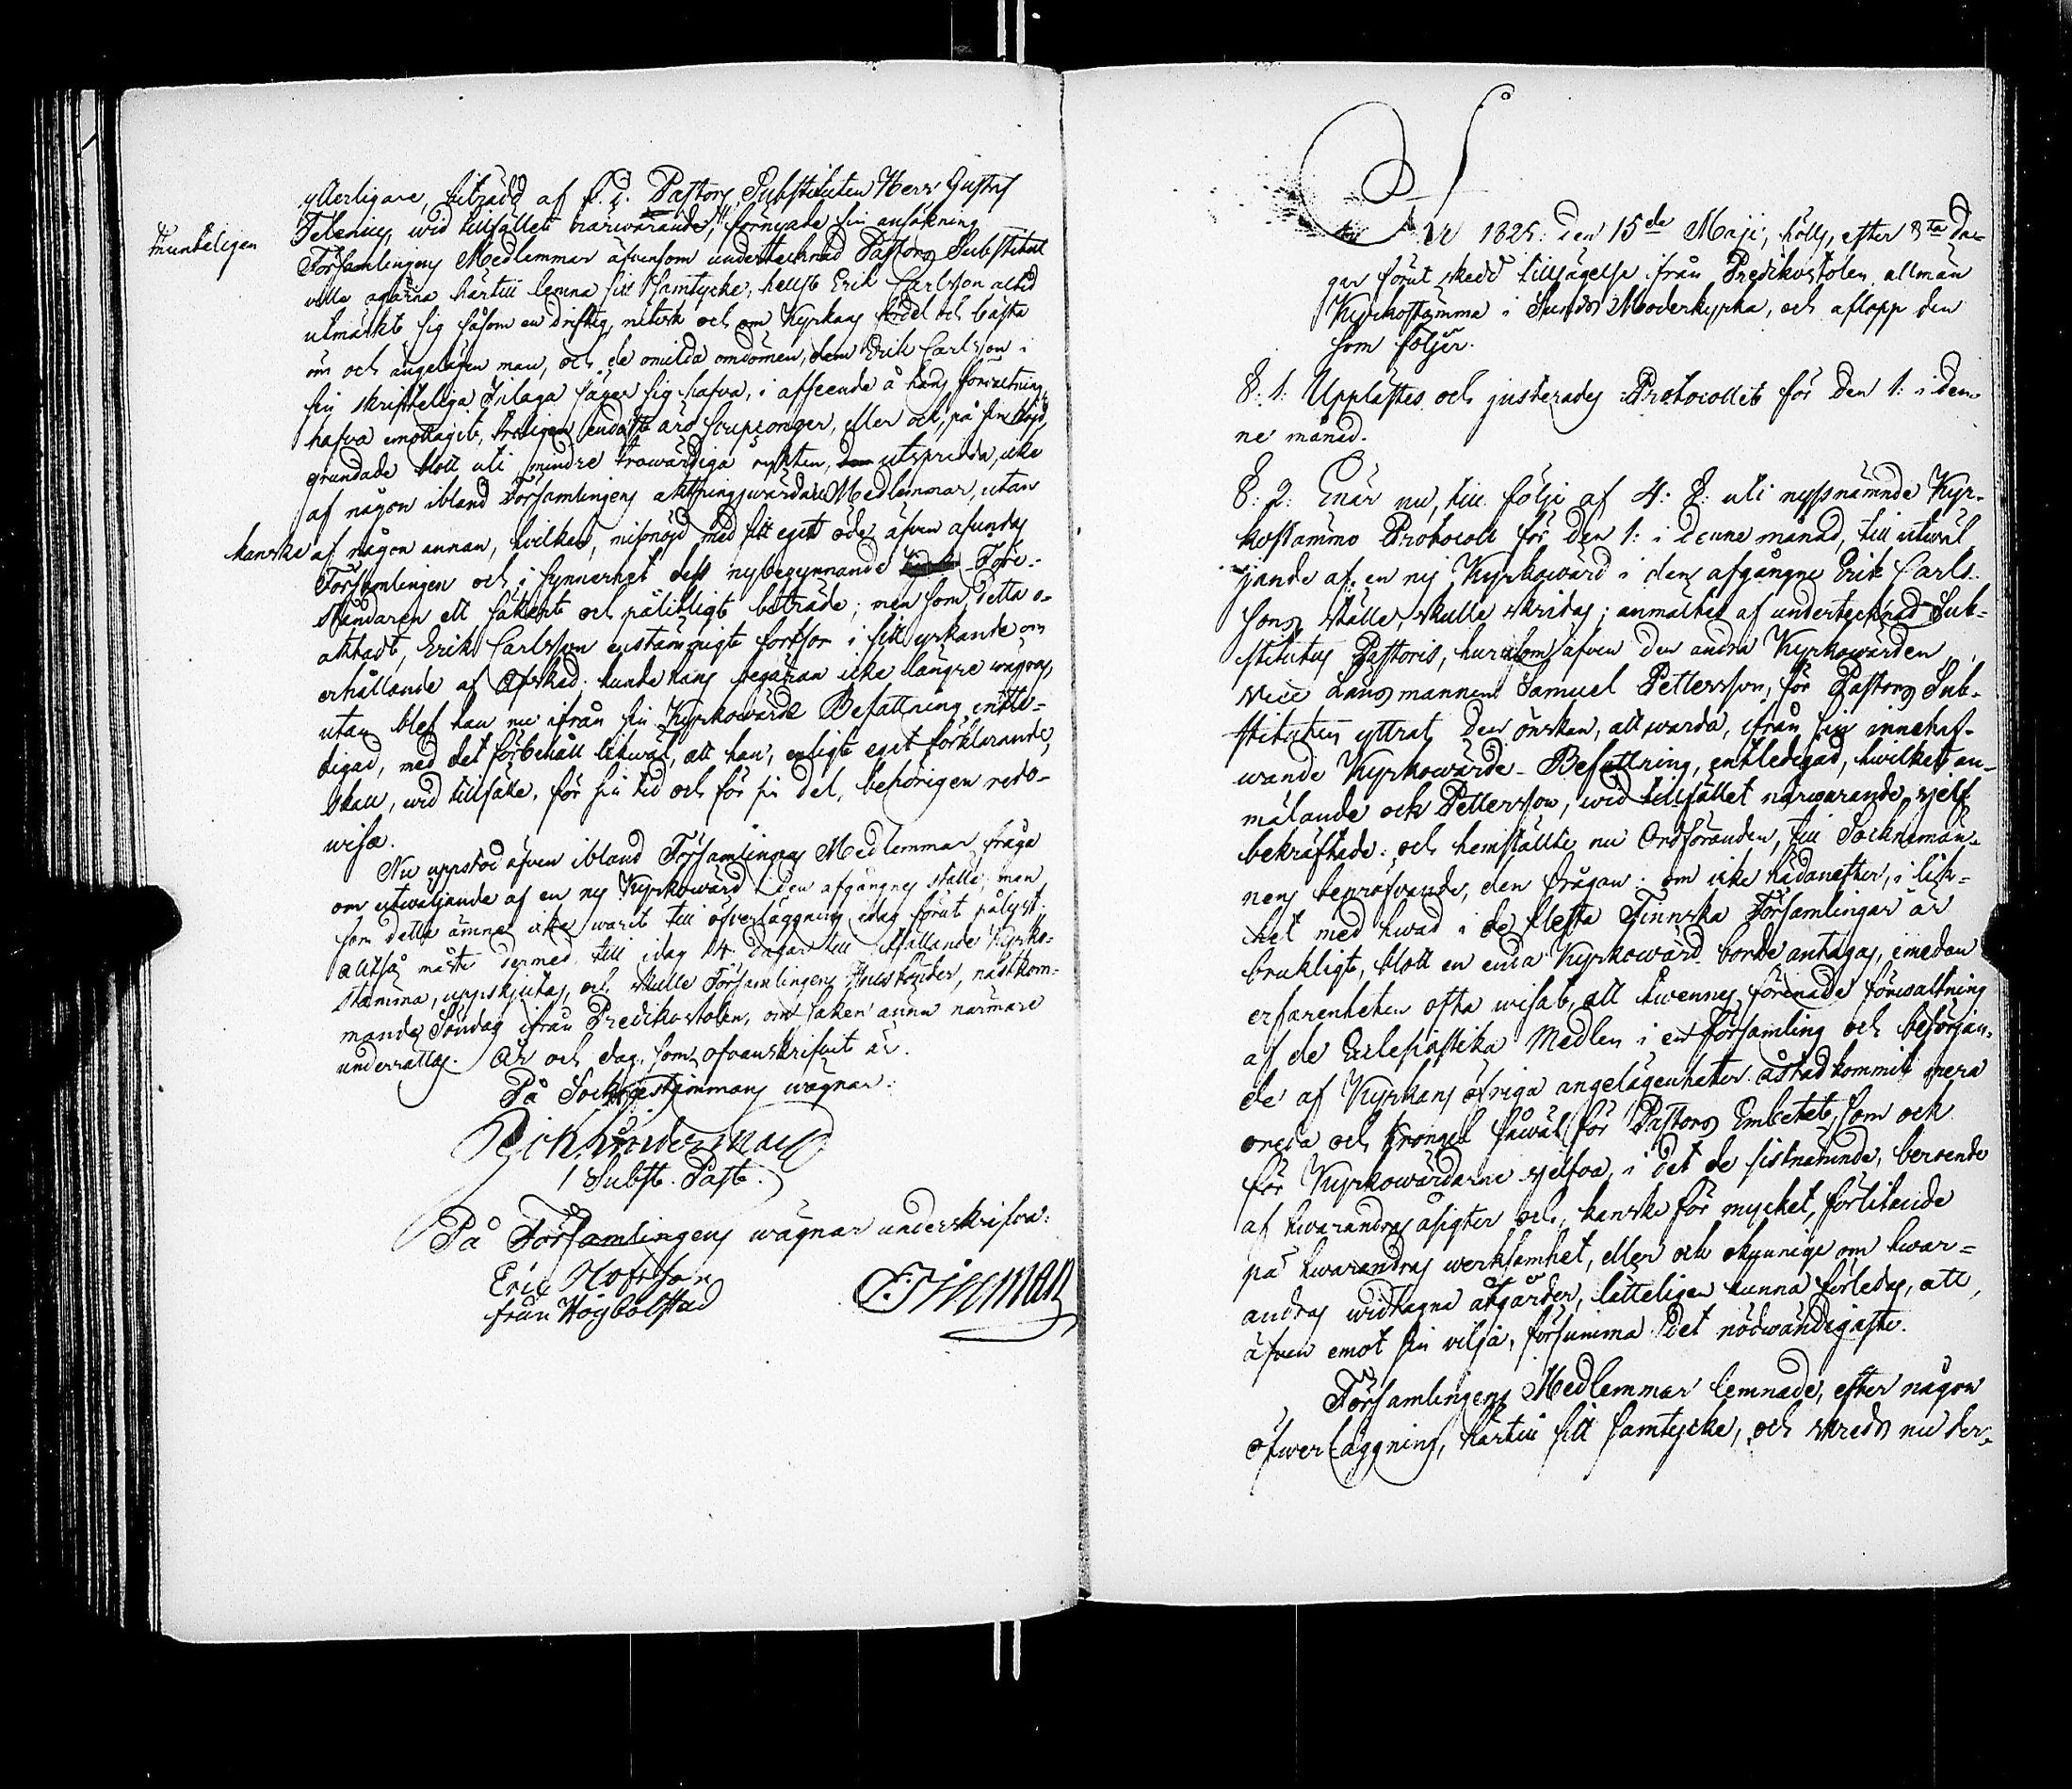 ytterligare, biträdd af f. d. Pastors Substituten Herr Gustaf
Telenius, wid tillfället närwarande, förnyade sin ansökning
munteligen
Församlingens Medlemmar äfvensom undertecknad Pastors Substitut
ville ogärna härtill lemna sitt samtycke, helst Erik Carlsson altid
utmärkt sig såsom en driftig, nitisk och om Kyrkans fördel och bästa
öm och angelägen man, och de omilda omdömen, dem Erik Carlsson i
sin skrifteliga Inlaga säger sig hafva, i afseende å hans förrättning,
hafva emottagit, troligen endast äro scupçonger, eller ock, på sin höjd,
grundade blott uti mindre trowärdiga rykten, utspridda, icke
af någon ibland Församlingens aktningswärdare Medlemmar, utan
kanske af någon annan, hvilken, misnöjd med sitt eget öde, äfven afundas
Församlingen och i synnerhet dess nybegynnande Före-
ståndaren ett säkert och pålitligt biträde; men som detta o-
aktadt, Erik Carlsson enständigt fortfor i sitt yrkande om
erhållande af Afsked, kunde hans begäran icke längre wägras,
utan blef han nu ifrån sin Kyrkowärds Befattning entle-
digad, med det förbehåll likwäl, att han, enligt eget förklarande,
skall, wid tillsäte, för sin tid och för sin del, behörigen redo-
wisa.
Nu uppstod äfven ibland Församlingens Medlemmar fråga
om utwäljande af en ny Kyrkowärd i den afgångnes ställe; men
som detta ämne icke warit till öfverläggning idag förut pålyst:
altså måste dermed till idag 14 dagar till infallande Kyrko-
stämma, uppskjutas, och skulle Församlingens Husbönder, nästkom-
mande Söndag ifrån Predikostolen, om saken ännu närmare
underrättas. År och dag, som ofvanskrifvit är.
På Sockenestämmans wägnar:
Joh. Söderman
/ Subst. Past.
På Församlingens wägnar underskrifva:
Eric Olofsson
från Högbolstad
F: Fineman
År 1825: den 15de Maji, hölls, efter 8ta da-
gar förut skedd tillsägelse ifrån Predikostolen allmän
Kyrkostämma i Sunds Moderkyrka, och aflopp den
som följer.
§: 1: Upplästes och justerades Protocollet för den 1: i den-
ne månad.
§: 2: Enär nu, till följe af 4: §: uti nyssnämnde Kyr-
kostämmo Protocoll för den 1: i denne månad, till utwäl-
jande af en ny Kyrkowärd i dens afgångne Erik Carls-
sons ställe skulle skridas; anmältes af undertecknad Sub-
stitutus Pastoris, hurusom äfven den andra Kyrkowärden
vice Länsmannen Samuel Pettersson, för Pastors Sub-
stituten yttrat den önskan, att warda, ifrån sin innehaf-
wande Kyrkowärds-Befattning, entledigad, hwilket an-
mälande ock Pettersson, wid tillfället närwarande, sjelf
bekräftade: och hemställte nu Ordföranden, till Sockenemän-
nens bepröfwande, den frågan: om icke hädanefter, i lik-
het med hwad i de flesta Finnska Församlingar är
brukligt, blott en enda Kyrkowärd borde antagas, emedan
erfarenheten ofta wisat, att twennes förenade förwaltning
af de Eclesiastika Medlen i en Församling och besörjan-
de af Kyrkans öfriga angelägenheter åstadkommit mera
oreda och krongel såwäl för Pastors Embetet, som ock
för Kyrkowärdarne sjelfva, i det de sistnämnde, beroende
af hwarandras åsigter och, kanske för mycket, förlitande
på hwarandras werksamhet, eller ock okunnige om hwar-
andras widtagna åtgärder, lätteligen kunna förledas, att,
äfven emot sin vilja, försumma det nödwändigaste.
Församlingens Medlemmar lemnade, efter någon
öfwerläggning, härtill sitt samtycke, och skreds nu der-